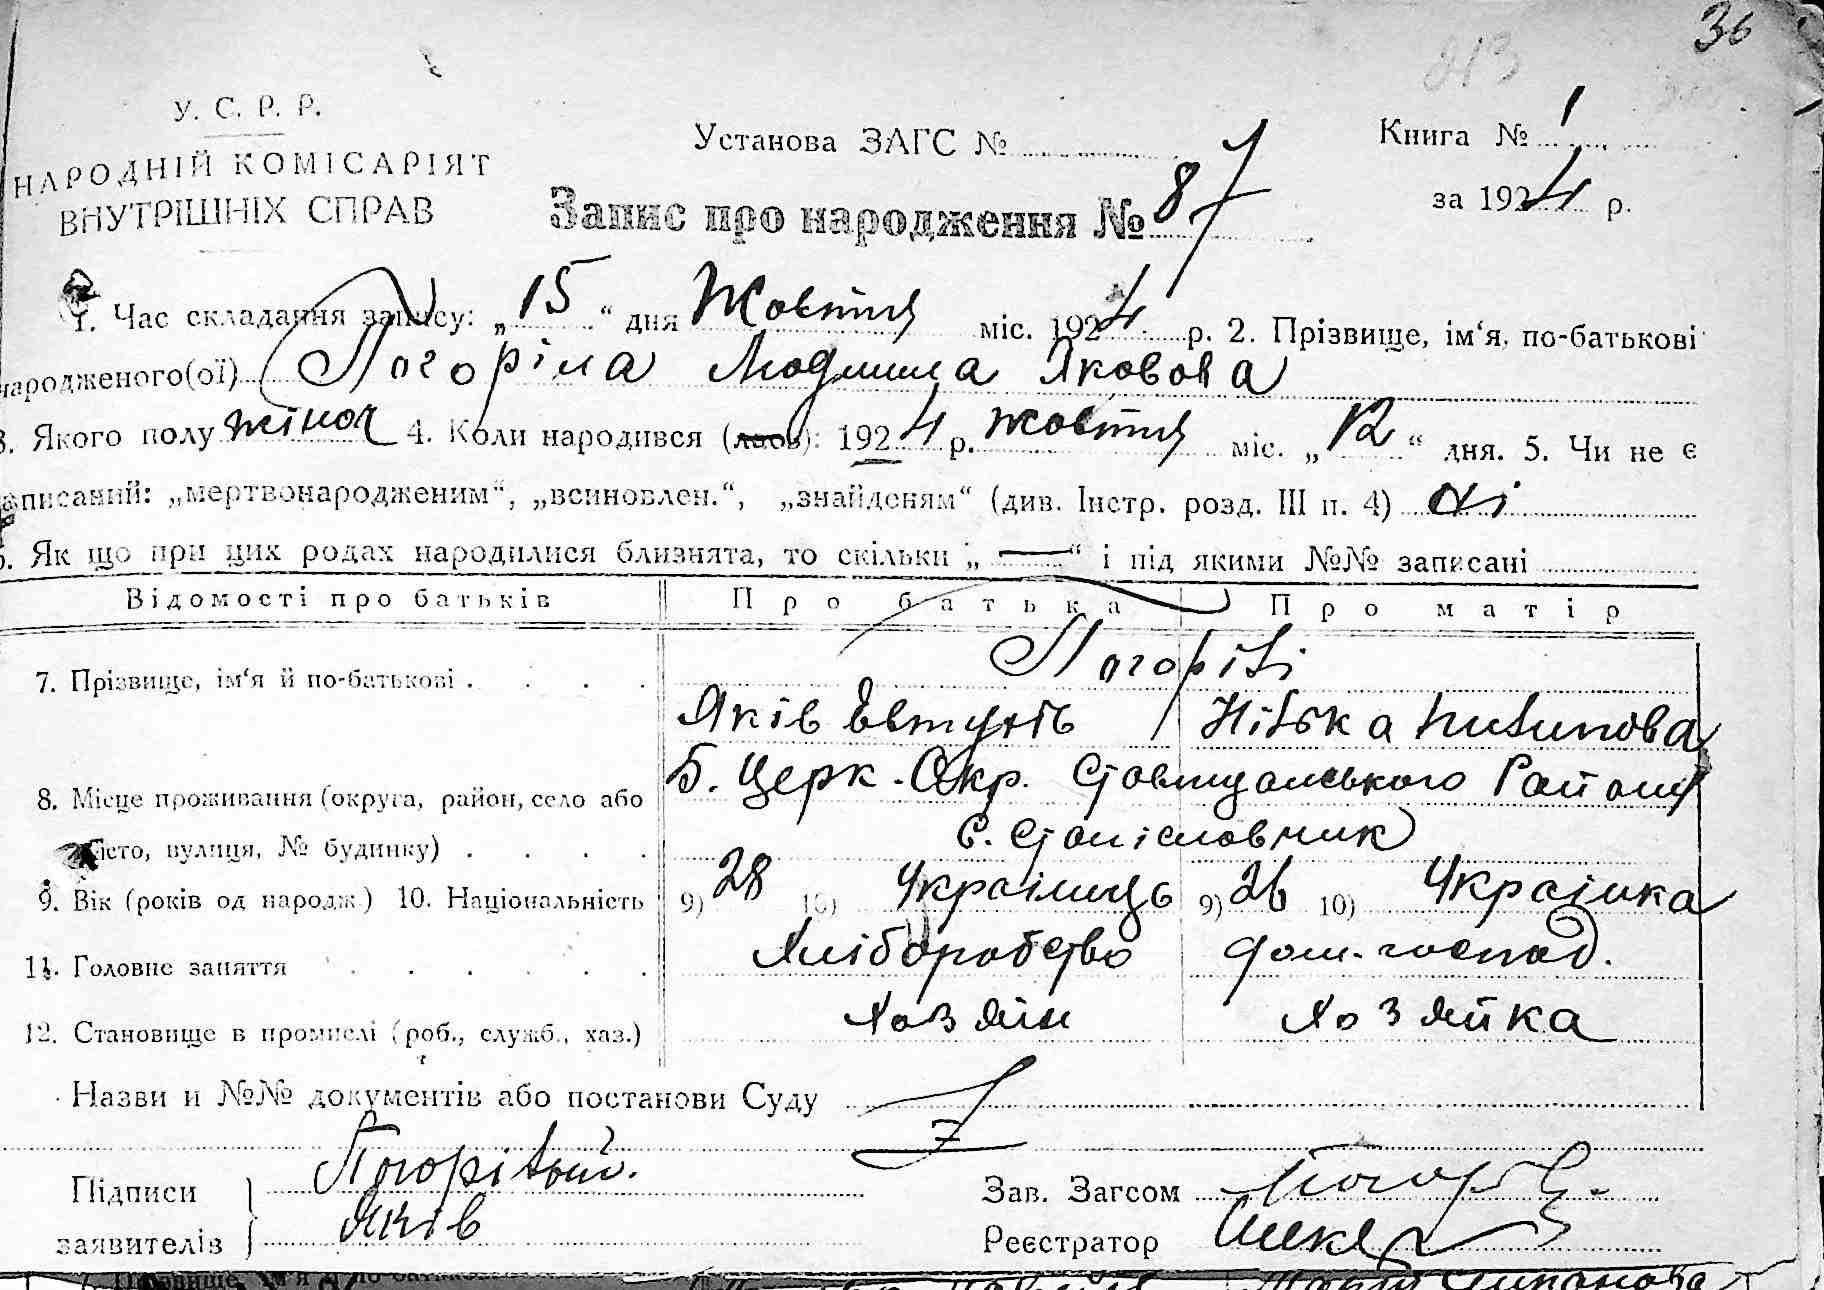 36
213
У. С. Р. Р.
НАРОДНІЙ КОМІСАРІЯТ
ВНУТРІШНІХ СПРАВ
Установа ЗАГС №
Книга № 1
за 1924 р.
Запис про народження № 87
1. Час складання запису: „15“ дня Жовтня міс. 1924 р. 2. Прізвище, ім‘я, по-батькові
народженого(ої) Погоріла Людмила Яковова
3. Якого полу жіноч 4. Коли народився (лась): 1924 р. жовтня міс. „12“ дня. 5. Чи не є
записаний: „мертвонародженим“, „всиновлен.“, „знайденям“ (див. Інстр. розд. III п. 4) ні
6. Як що при цих родах народилися близнята, то скільки „—“ і під якими №№ записані
Відомості про батьків Про батька Про матір
7. Прізвище, ім‘я й по-батькові . . . . Погорілі
Яків Євтухів
8. Місце проживання (округа, район, село або Б. Церк. Окр. Ставищанського Району
місто, вулиця, № будинку) . . . . с. Станіславчик
9. Вік (років од народж.) 10. Національність 9) 28 10) Українець 9) 26 10) Українка
11. Головне заняття . . . . . Хліборобство дом. господ.
12. Становище в промислі (роб., служб., хаз.) Хозяїн Хозяйка
Назви и №№ документів або постанови Суду
Підписи Погорілый. Зав. Загсом
заявителів Яків Реєстратор